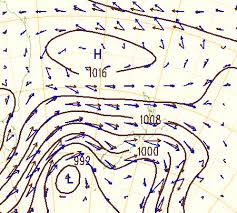 H
1016
1008
1000
992